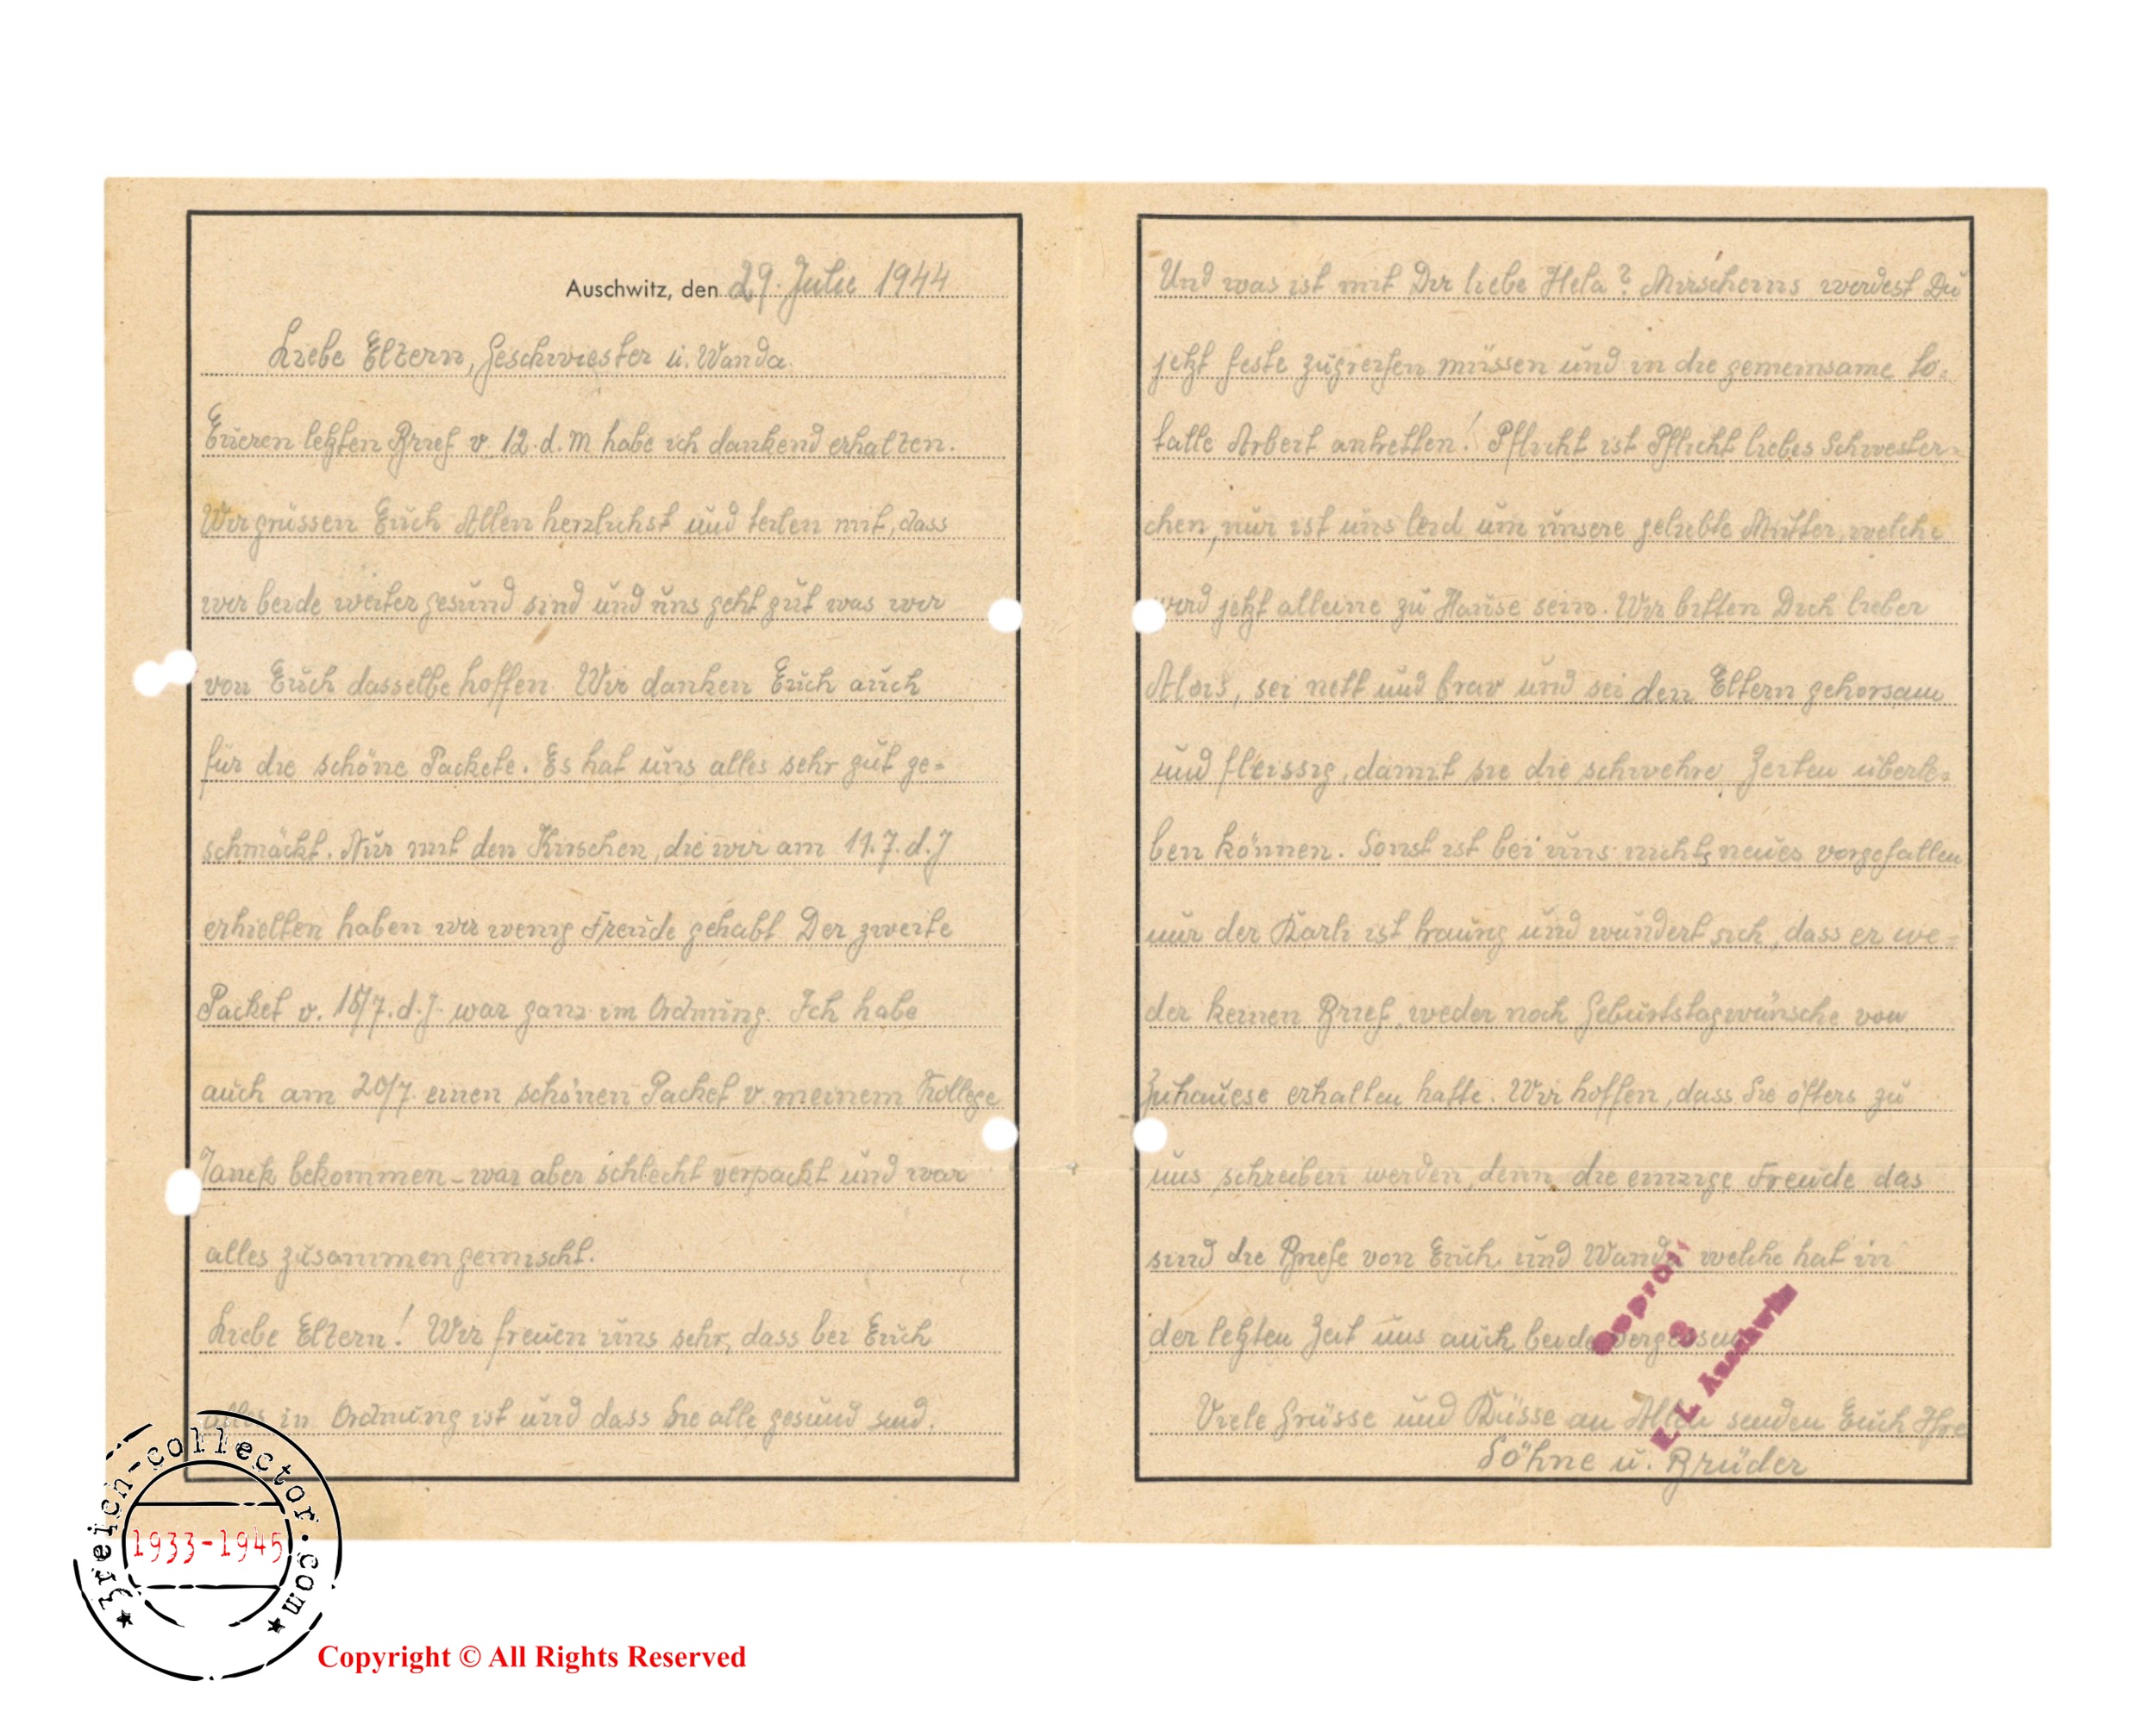 Auschwitz, den 29. Julie 1944
Liebe Eltern, Geschwiester u. Wanda.
Eueren letzten Brief v. 12. d. M habe ich dankend erhalten.
Wir grüssen Euch Allen herzlichst und teilen mit, dass
wir beide weiter gesund sind und uns geht gut was wir
von Euch dasselbe hoffen. Wir danken Euch auch
für die schöne Packete. Es hat uns alles sehr gut ge=
schmäckt. Nur mit den Kirschen, die wir am 11.7. d. J
erhielten haben wir wenig Freude gehabt. Der zweite
Packet v. 18/7. d. J. war ganz im Ordnung. Ich habe
auch am 20/7. einen schönen Packet v. meinem Kollege
Janek bekommen – war aber schlecht verpackt und war
alles zusammengemischt.
Liebe Eltern! Wir freuen uns sehr, dass bei Euch
alles in Ordnung ist und dass Sie alle gesund sind.
Und was ist mit Dir liebe Hela? Mirscheins werdest Du
jetzt feste zugreifen müssen und in die gemeinsame to=
talle Arbeit antretten! Pflicht ist Pflicht liebes Schwester=
chen, nur ist uns leid um unsere geliebte Mutter, welche
wird jetzt alleine zu Hause sein. Wir bitten Dich lieber
Alois, sei nett und brav und sei den Eltern gehorsam
und fleissig, damit sie die schwehre Zeiten überle=
ben können. Sonst ist bei uns nichts neues vorgefallen
nur der Karli ist traurig und wundert sich, dass er we=
der keinen Brief, weder noch Geburtstagwünsche von
Zuhauese erhalten hatte. Wir hoffen, dass Sie öfters zu
uns schreiben werden, denn die einzige Freude das
sind die Briefe von Euch und Wanda welche hat in
der letzten Zeit uns auch beide vergessen
Viele Grüsse und Küsse an Allen senden Euch Ihre
Söhne u. Brüder
3
K. L. Auschwitz
3reich-collector.com
1933-1945
Copyright © All Rights Reserved